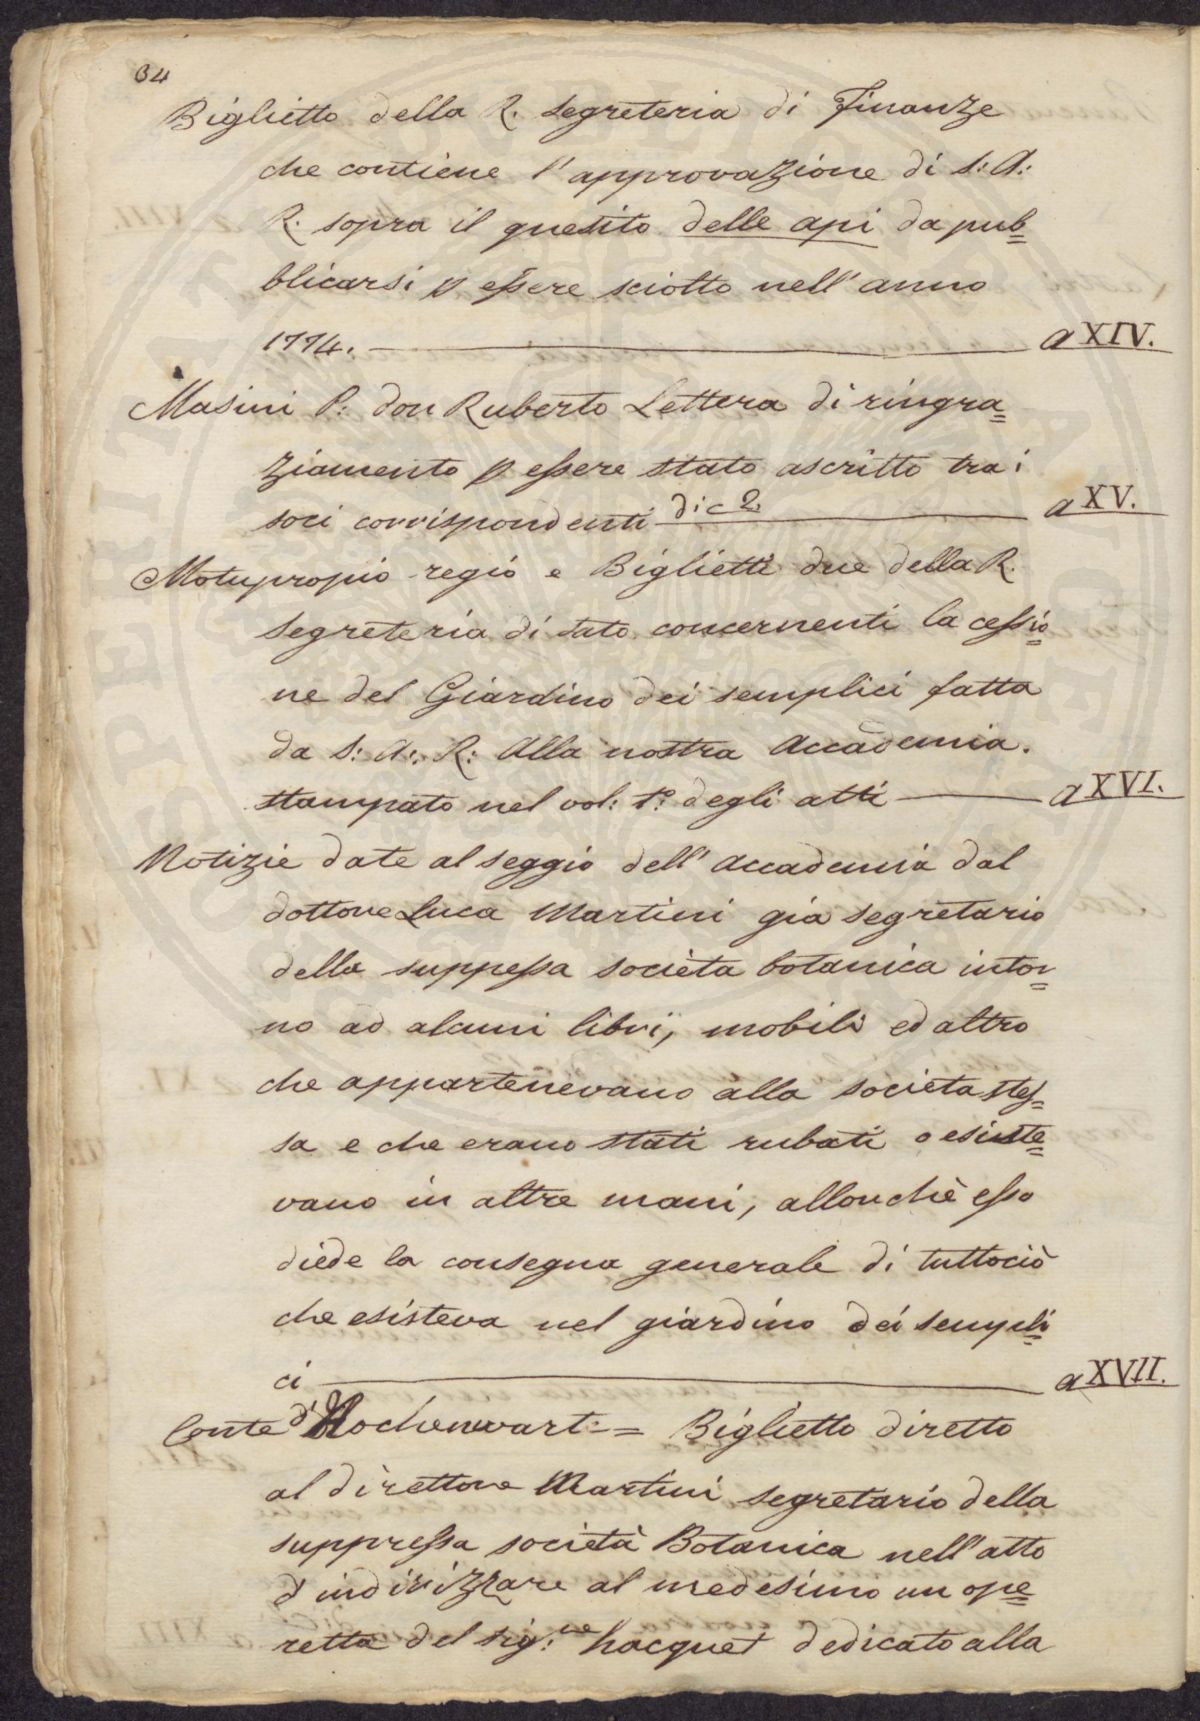 34
Biglietto della R. Segreteria di Finanze
che contiene l'approvazione di S: A:
R. sopra il quesito delle api da pub=
blicarsi p essere sciotto nell'anno
1774. a XIV.
Masini P: don Ruberto Lettera di ringra=
ziamento p essere stato ascritto tra i
soci corrispondenti dic 2 a XV.
Motupropio regio e Biglietti due della R.
Segreteria di stato concernenti la cessio=
ne del Giardino dei semplici fatta
da S: A: R: Alla nostra Accademia.
stampato nel vol: 1º degli atti a XVI.
Notizie date al seggio dell'Accademia dal
dottore Luca Martini già segretario
della suppessa società botanica intor=
no ad alcuni libri, mobili ed altro
che appartenevano alla società stes=
sa e che erano stati rubati o esiste=
vano in altre mani, allorchè esso
diede la consegna generale di tuttociò
che esisteva nel giardino dei sempli=
ci a XVII.
Conte d' Hochenwart := Biglietto diretto
al direttore Martini segretario della
suppressa società Botanica nell'atto
d'indirizzare al medesimo un ope=
retta del sig:re hacquet dedicato alla